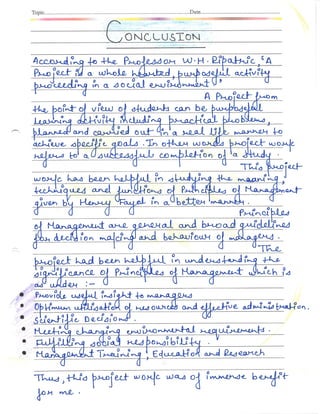 Topic
Date
CONCLUSION
According to the Professor W.H. Ripatric, 'A
Project is a whole hearted, purposeful activity
proceeding in a social environment'
A Project from
the point of view of students can be purposeful
learning activity including practical problems,
planned and carried out in a real life manner to
achieve specific goals. In other words project work
refers to a successful completion of a study.
This project
work has been helpful in studying the meaning,
techniques and functions of Principles of Management
given by Henry Fayol in a better manner.
Principles
of Management are general and broad guidelines
for decision making and behaviour of managers.
The
project had been helpful in understanding the
significance of Principles of Management which is
as under :-
• Provide useful insight to managers
• Optimum utilisation of resources and effective administration.
• Scientific Decisions.
• Meeting changing environmental requirements.
• Fulfilling social responsibility.
• Management Training, Education and Research
Thus, this project work was of immense benefit
for me.